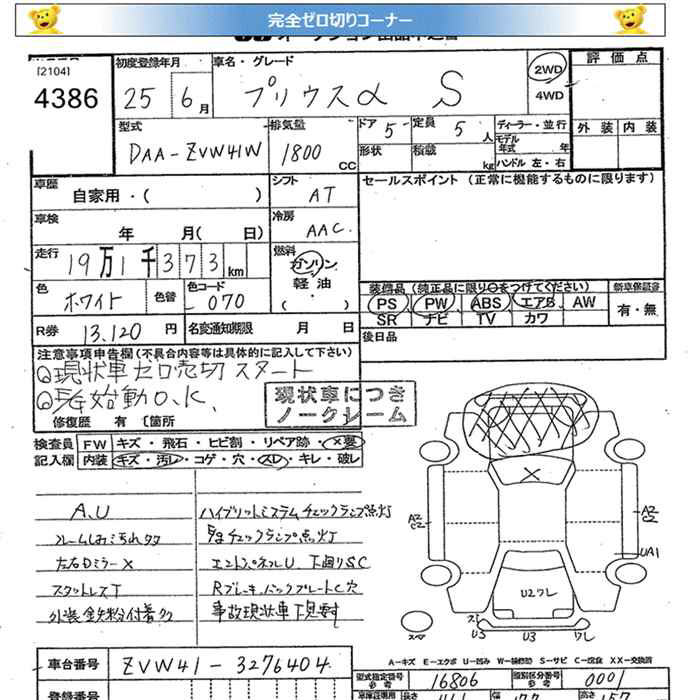 完全ゼロ切りコーナー
[2104]
4386
初度登録年月
25年 6月
車名・グレード
プリウスα S
2WD
4WD
評価点
外装 内装
型式
DAA-ZVW41W
排気量
1800 CC
ドア 5
定員 5 人
形状
積載 kg
ディーラー・並行
モデル年式 年
ハンドル 左・右
車歴
自家用・( )
シフト
AT
セールスポイント (正常に機能するものに限ります)
車検
年 月( 日)
冷房
AAC
走行
19万1千373km
燃料
ガソリン・軽油・( )
色
ホワイト
色替
色コード
070
装備品(純正品に限り○をつけてください)
PS PW ABS エアB AW
SR ナビ TV カワ
新車保証書
有・無
R券 13,120円
名変通知期限 月 日
後日品
注意事項申告欄(不具合内容等は具体的に記入して下さい)
◎現状車ゼロ売切スタート
始動O.K.
現状車につき
ノークレーム
修復歴 有 〔箇所
検査員記入欄
FW キズ・飛石・ヒビ割・リペア跡・×要
内装 キズ・汚レ・コゲ・穴・スレ・キレ・破レ
A.U
左右Dミラー×
スタットレスT
外装鉄粉付着多
ハイブリットシステムチェックランプ点灯
チェックランプ点灯
エントパネルU 下廻りSC
Rブレーキバックプレート C穴
事故現状車下見要
A2
C2
A2
C2
UA1
U2ワレ
U3
U3
ワレ
スペア
A-キズ E-エクボ U-凹み W-補修跡 S-サビ C-腐食 XX-交換済
車台番号
ZVW41-3276404
型式指定番号 参考
16806
類別区分番号 参考
0001
登録番号